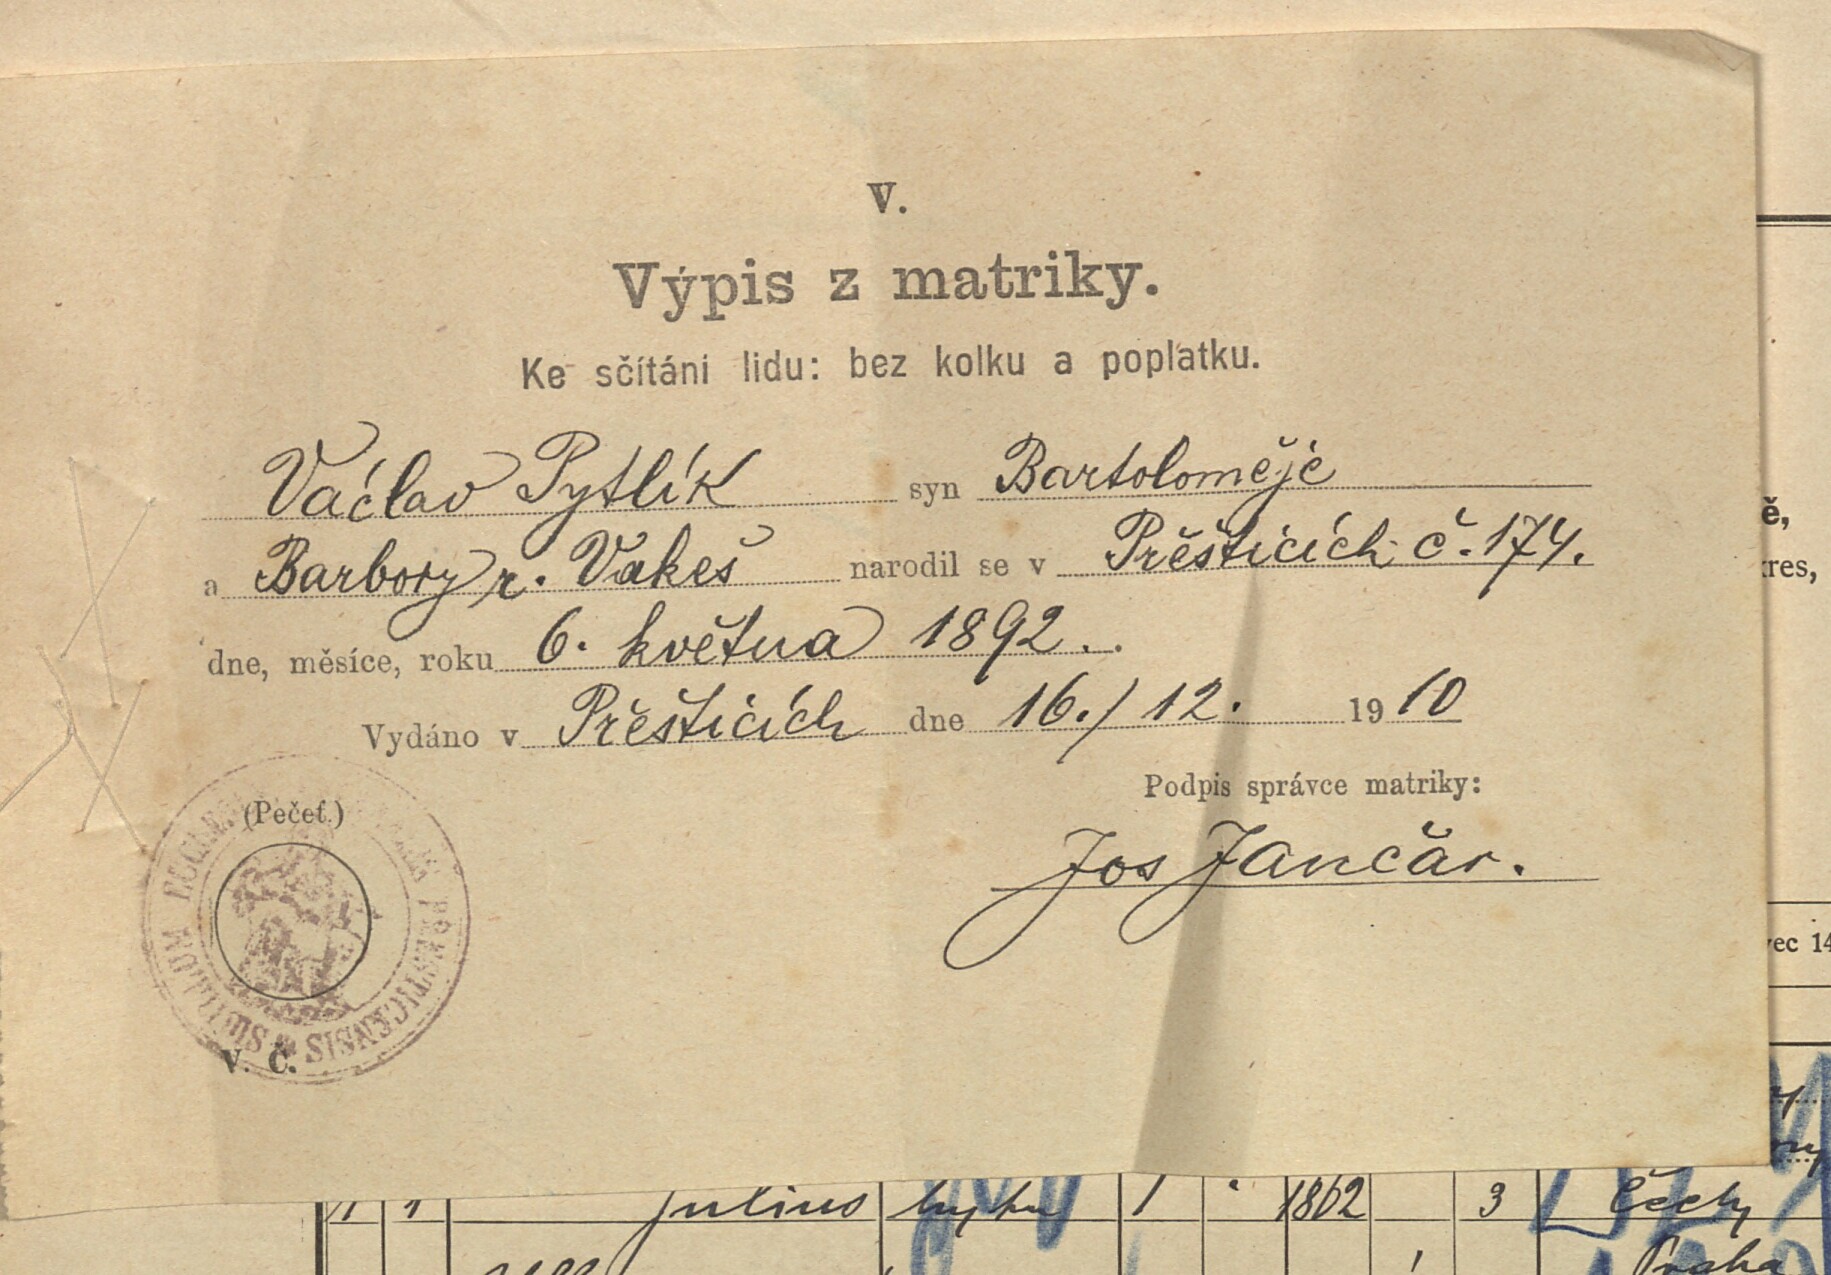 V.
Výpis z matriky.
Ke sčítání lidu: bez kolku a poplatku.
Václav Pytlík syn Bartoloměje
a Barbory r. Vakeš narodil se v Přešticích č. 174.
dne, měsíce, roku 6. května 1892..
Vydáno v Přešticích dne 16./12. 1910
Podpis správce matriky:
(Pečeť.)
Jos Jančár.
PŘESTICENSIS
V. Č.
ě,
kres,
vec 14
1 1 Julius 1 1862 3 Čechy
Praha